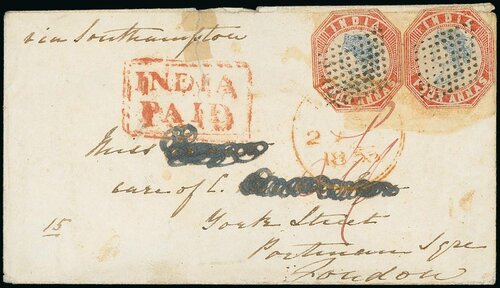 via Southampton
INDIA INDIA
FOUR ANNAS FOUR ANNAS
INDIA
PAID
Miss
care of C.
York Street
Portman Sqre
London
15
2